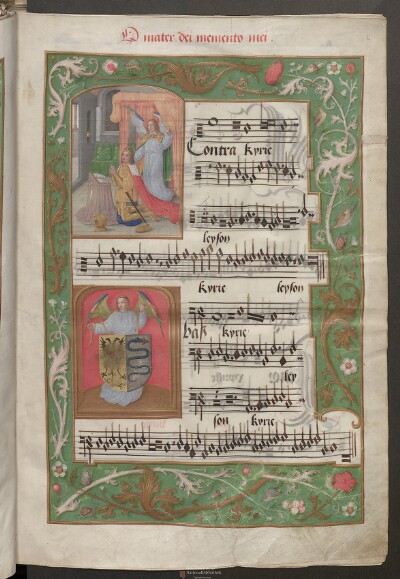 O mater dei memento mei.
Contra Kyrie
leyson
Kyrie leyson
bass kyrie
ley
son kyrie